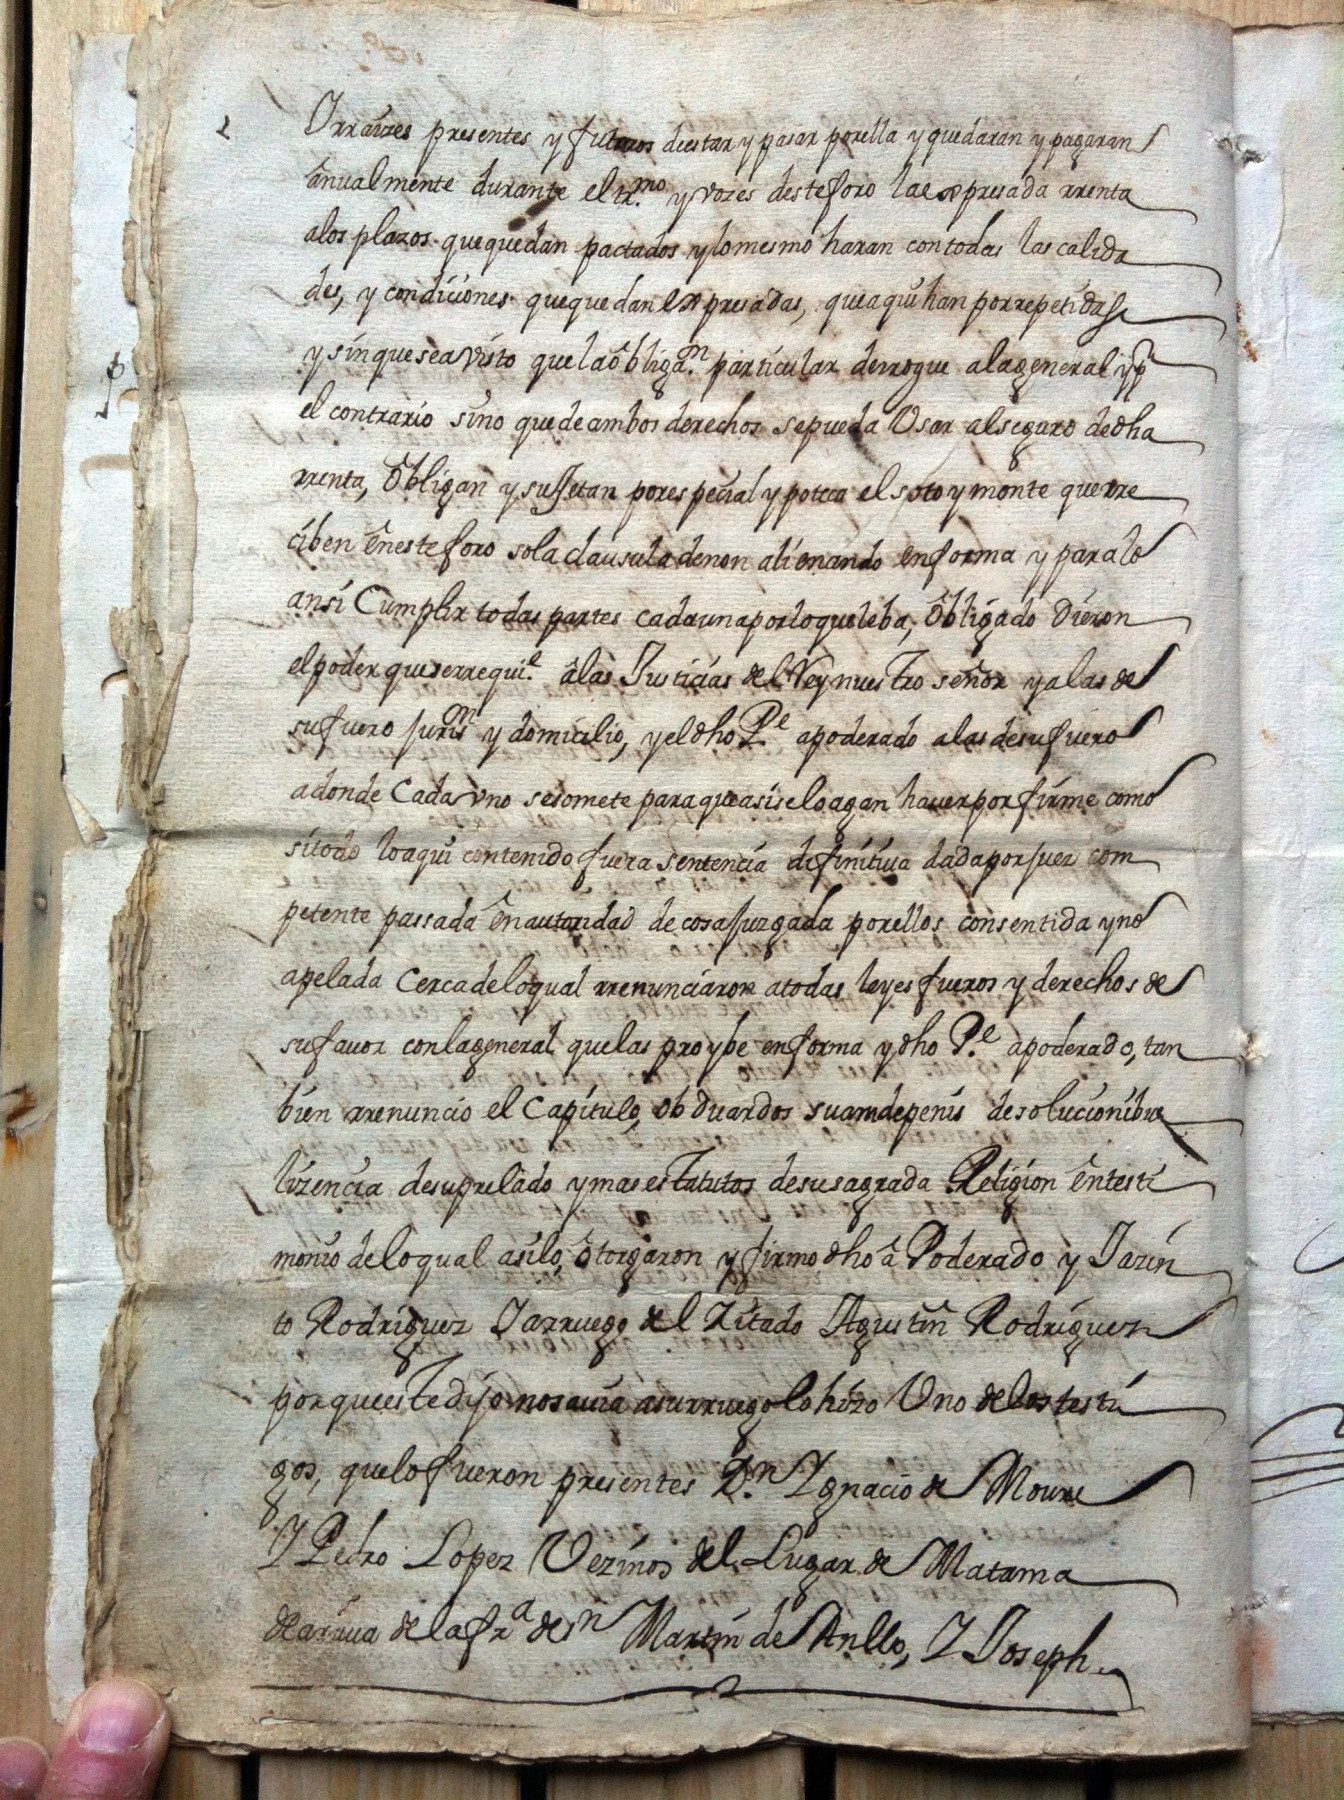 Y rraizes presentes y futuros deestar y pasar porella y quedaran y pagaran
ânualmente durante el tr.mo y vozes desteforo la expresada rrenta
alos plazos quequedan pactados ylomesmo haran contodas las calida
des, y condiciones quequedan expresadas, queaqui han por repetidas
y sinquesea visto que laôbliga.n particular derrogue alageneral y p
el contrario sino quedeambos derechos sepueda Usar alseguro dedha
rrenta, ôbligan y sujetan porespecial ypoteca el soto y monte querre
ciben êneste foro sola clausula denon alienando enforma y paralo
ansi Cumplir todas partes cadaunaporloqueleba, ôbligado Dieron
elpoder queserrequi.e âlas Justicias del Rey nuestro señor yalas de
sufuero juris.n y domicilio, yeldho P.e apoderado alas desufuero
adonde Cada vno sesomete paraqueasiseloagan hauerporfirme como
sitodo loaqui contenido fuera sentencia difinitiua dadaporjuez com
petente passada ênautoridad de cosajuzgada porellos consentida yno
apelada Cercadeloqual rrenunciaron atodas leyes fueros y derechos de
sufauor conlageneral quelas proybe enforma ydho P.e apoderado, tan
bien rrenuncio el Capitulo, obduardos suamdepenis desolucionibus
lizencia desuprelado ymasestatutos desusagrada Religion êntesti
monio deloqual asilo, ôtorgaron y firmo dho â Poderado y Jazin
to Rodriguez Yarruego del Zitado Agustin Rodriguez
porqueestedijo nosauia asurruegolohizo Uno delostesti
gos, quelofueron presentes D.n Ygnacio de Moure
Y Pedro Lopez Vezinos del Lugar de Matama
dearriua delafra de Sn Martin de Anllo, Y Joseph